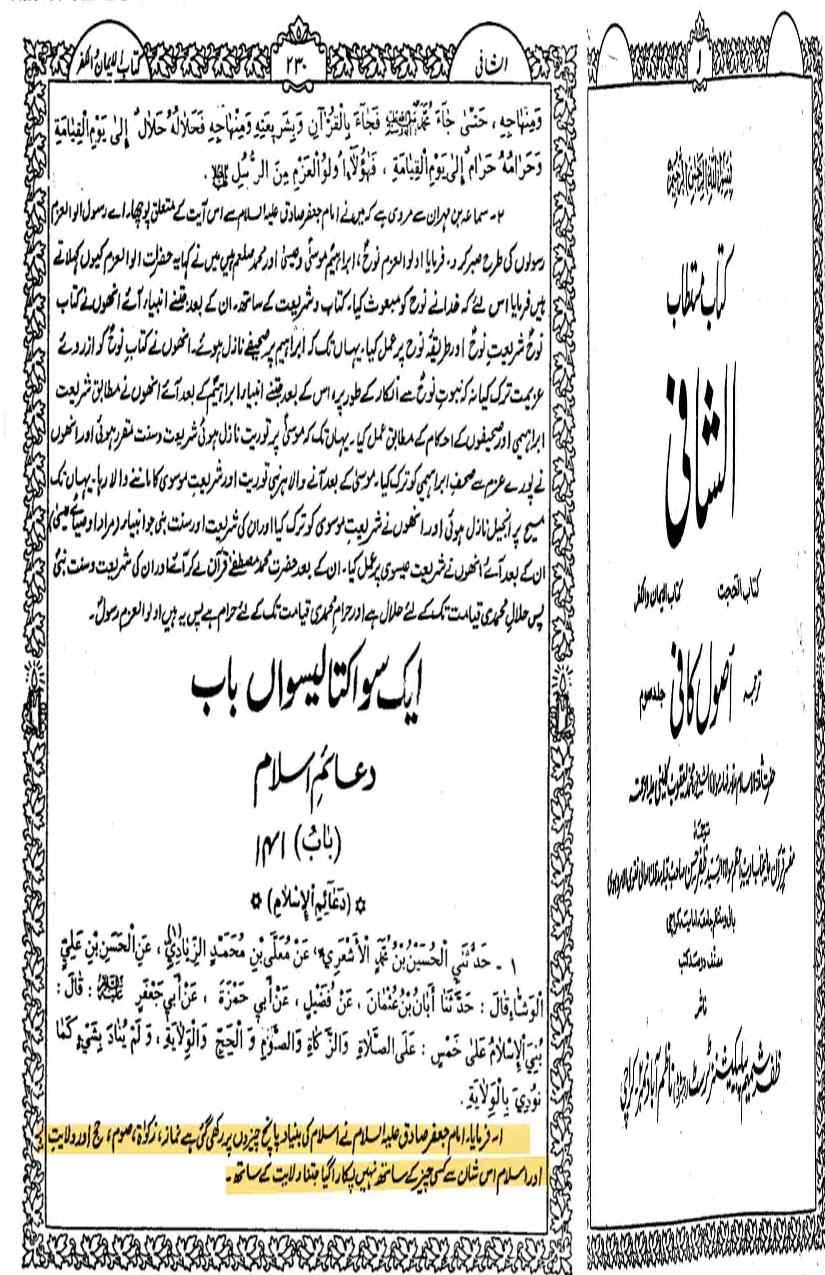 کتاب الایمان والکفر
۲۳۰
الشافی
وَمِنْهَاجِهِ ، حَتَّىٰ جَاءَ مُحَمَّدٌ فَجَاءَ بِالْقُرْآنِ وَبِشَرِيعَتِهِ وَمِنْهَاجِهِ فَحَلَالُهُ حَلَالٌ إِلَىٰ يَوْمِ الْقِيَامَةِ
وَحَرَامُهُ حَرَامٌ إِلَىٰ يَوْمِ الْقِيَامَةِ ، فَهٰؤُلَاءِ أُولُو الْعَزْمِ مِنَ الرُّسُلِ .
۲۔ سماعہ بن مہران سے مروی ہے کہ میں نے امام جعفر صادق علیہ السلام سے اس آیت کے متعلق پوچھا۔ اے رسول اولوالعزم
رسولوں کی طرح صبر کرو۔ فرمایا اولوالعزم نوحؑ، ابراہیمؑ موسیٰؑ وعیسیٰؑ اور محمد صلعم ہیں میں نے کہا یہ حضرات اولوالعزم کیوں کہلاتے
ہیں فرمایا اس لئے کہ خدا نے نوح کو مبعوث کیا۔ کتاب و شریعت کے ساتھ۔ ان کے بعد جتنے انبیاء آئے انھوں نے کتاب
نوحؑ شریعتِ نوحؑ اور طریقہ نوح پر عمل کیا۔ یہاں تک کہ ابراہیم پر صحیفے نازل ہوئے۔ انھوں نے کتاب نوحؑ کو از روئے
عزیمت ترک کیا نہ کہ نبوتِ نوحؑ سے انکار کے طور پر، اس کے بعد جتنے انبیاء ابراہیمؑ کے بعد آئے انھوں نے مطابق شریعت
ابراہیمی اور صحیفوں کے احکام کے مطابق عمل کیا۔ یہاں تک کہ موسیٰؑ پر توریت نازل ہوئی شریعت و سنت مقرر ہوئی اور انھوں
نے پورے عزم سے صحفِ ابراہیمی کو ترک کیا۔ موسیٰ کے بعد آنے والا ہر نبی توریت اور شریعتِ موسوی کا ماننے والا رہا۔ یہاں تک
مسیح پر انجیل نازل ہوئی اور انھوں نے شریعتِ موسوی کو ترک کیا اور ان کی شریعت اور سنت بنی جو انبیاء (مراد اوصیائے عیسیٰ)
ان کے بعد آئے انھوں نے شریعت عیسوی پر عمل کیا۔ ان کے بعد حضرت محمد مصطفےٰ قرآن لے کر آئے اور ان کی شریعت و سنت بنی
پس حلالِ محمدی قیامت تک کے لئے حلال ہے اور حرامِ محمدی قیامت تک کے لئے حرام ہے پس یہ ہیں اولوالعزم رسول۔
ایک سو اکتالیسواں باب
دعائمِ اسلام
(بَابُ) ۱۴۱
(دَعَائِمِ الْإِسْلَامِ)
۱ - حَدَّثَنِي الْحُسَيْنُ بْنُ مُحَمَّدٍ الْأَشْعَرِيُّ، عَنْ مُعَلَّى بْنِ مُحَمَّدٍ الزِّيَادِيِّ (۱) ، عَنِ الْحَسَنِ بْنِ عَلِيٍّ
الْوَشَّاءِ قَالَ : حَدَّثَنَا أَبَانُ بْنُ عُثْمَانَ ، عَنْ فُضَيْلٍ ، عَنْ أَبِي حَمْزَةَ ، عَنْ أَبِي جَعْفَرٍ : قَالَ :
بُنِيَ الْإِسْلَامُ عَلَىٰ خَمْسٍ : عَلَى الصَّلَاةِ وَالزَّكَاةِ وَالصَّوْمِ وَ الْحَجِّ وَالْوِلَايَةِ ، وَ لَمْ يُنَادَ بِشَيْءٍ كَمَا
نُودِيَ بِالْوِلَايَةِ .
۱۔ فرمایا۔ امام جعفر صادق علیہ السلام نے اسلام کی بنیاد پانچ چیزوں پر رکھی گئی ہے نماز، زکوٰۃ، صوم، حج اور ولایت
اور اسلام اس شان سے کسی چیز کے ساتھ نہیں پکارا گیا جتنا ولایت کے ساتھ۔
بسم اللہ الرحمن الرحیم
کتاب مستطاب
الشافی
کتاب الحجت
کتاب الایمان والکفر
ترجمہ اصول کافی جلد سوم
ناشر
ظفر شمیم پبلیکیشنز ٹرسٹ ناظم آباد کراچی